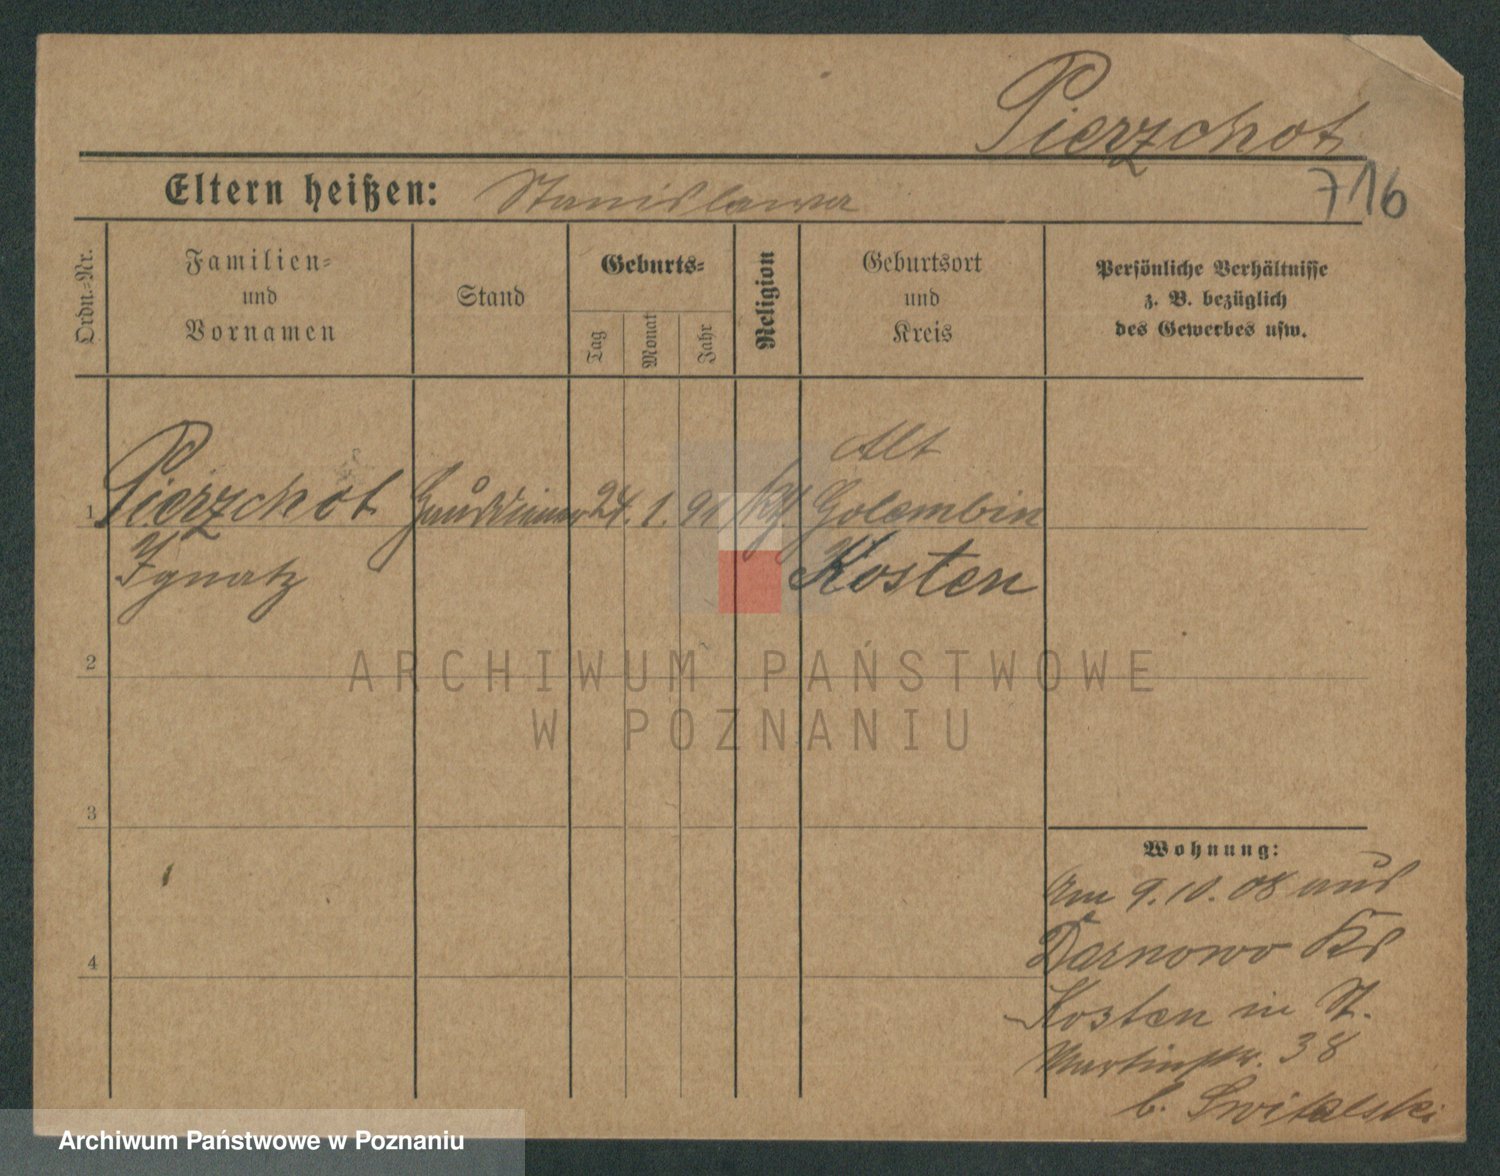 Pierzchot
Eltern heißen: Stanislawa
716
Ordn.-Nr.
Familien-
und
Vornamen
Stand
Geburts-
Tag
Monat
Jahr
Religion
Geburtsort
und
Kreis
Persönliche Verhältnisse
z. B. bezüglich
des Gewerbes usw.
1
Pierzchot
Ignatz
24. 1. 91
Alt
Golembin
Kosten
2
ARCHIWUM PAŃSTWOWE
W POZNANIU
3
4
Wohnung:
Am 9.10.08 aus
Darnowo Kr
Kosten in St.
Martinstr. 38
b. Switalski
Archiwum Państwowe w Poznaniu